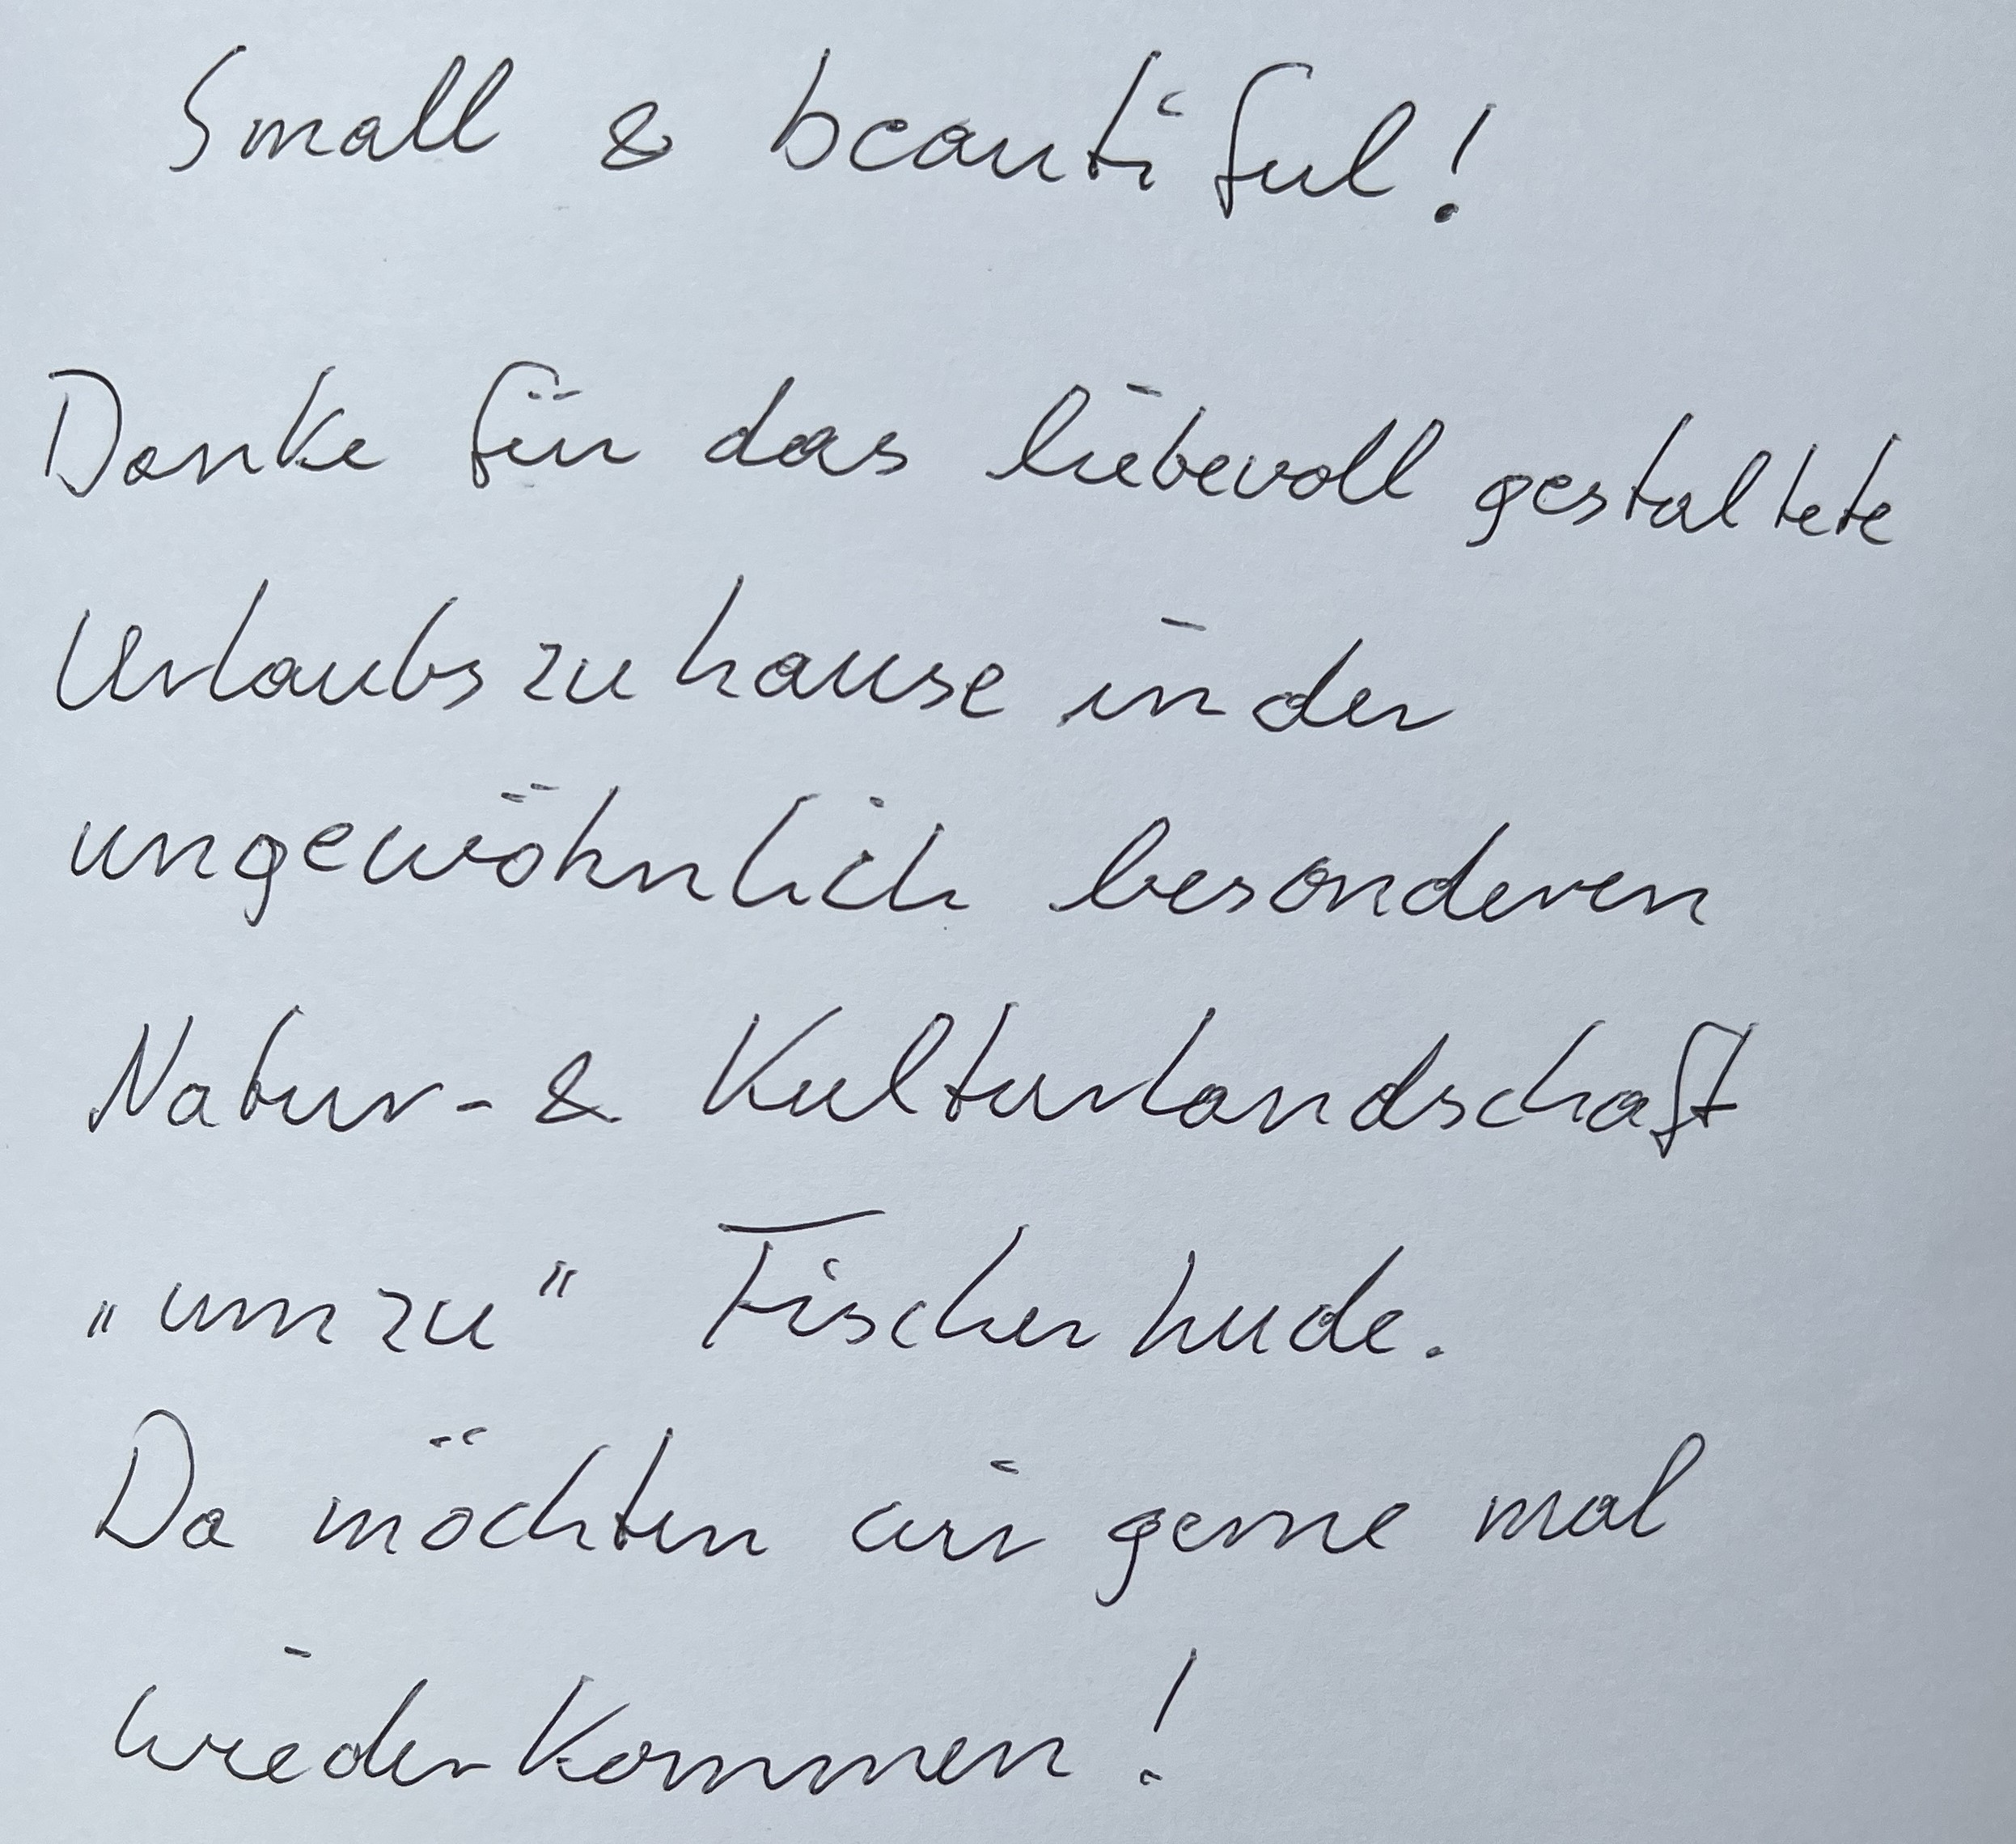 Small & beautiful!
Danke für das liebevoll gestaltete
Urlaubszuhause in der
ungewöhnlich besonderen
Natur- & Kulturlandschaft
„umzu“ Fischerhude.
Da möchten wir gerne mal
wiederkommen!